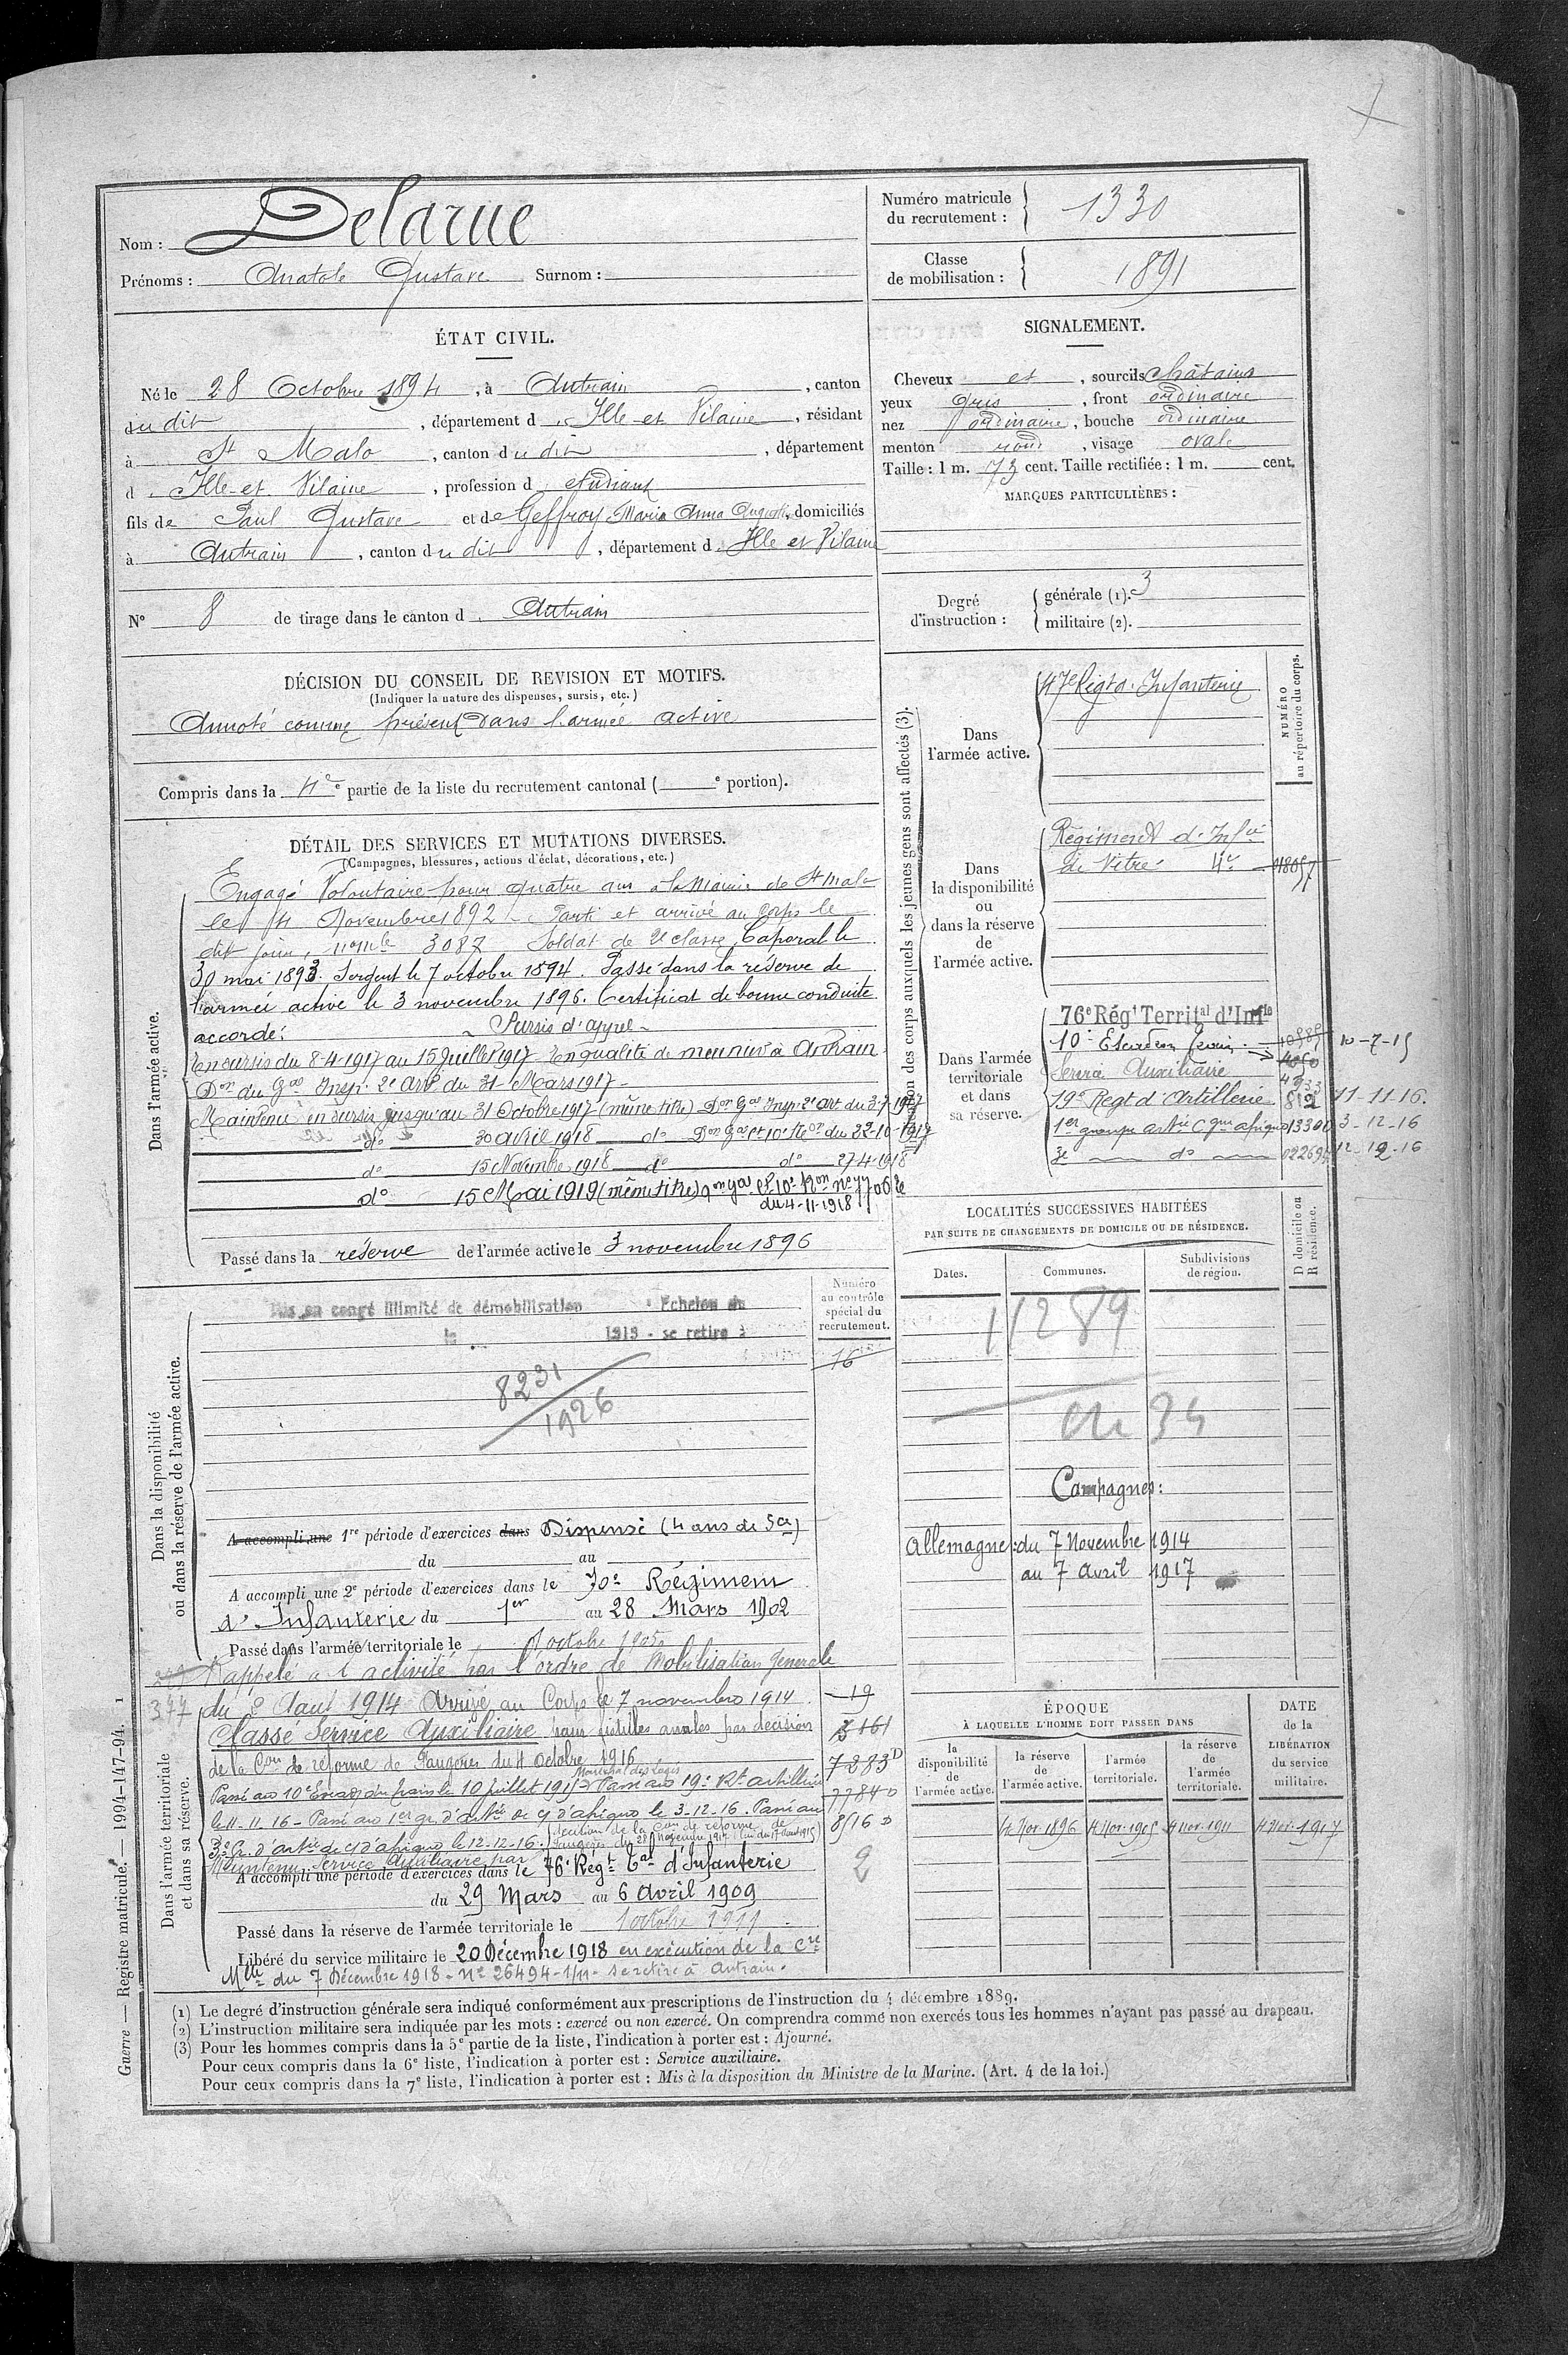 Nom : Delarue
Prénoms : Anatole Gustave Surnom :
Numéro matricule du recrutement : 1330
Classe de mobilisation : 1891
ÉTAT CIVIL.
Né le 28 Octobre 1894, à Antrain, canton
du dit, département d Ille et Vilaine, résidant
à St Malo, canton du dit, département
d Ille et Vilaine, profession d étudiant
fils de Paul Gustave et de Geffroy Maria Anna, domiciliés
à Antrain, canton du dit, département d Ille et Vilaine
N° 8 de tirage dans le canton d Antrain
SIGNALEMENT.
Cheveux et, sourcils châtains
yeux gris, front ordinaire
nez ordinaire, bouche ordinaire
menton rond, visage ovale
Taille : 1 m. 73 cent. Taille rectifiée : 1 m. cent.
MARQUES PARTICULIÈRES :
Degré d'instruction : générale (1). 3
militaire (2).
DÉCISION DU CONSEIL DE REVISION ET MOTIFS.
(Indiquer la nature des dispenses, sursis, etc.)
Annoté comme présent dans l'armée active
Compris dans la 4e e partie de la liste du recrutement cantonal ( e portion).
DÉTAIL DES SERVICES ET MUTATIONS DIVERSES.
(Campagnes, blessures, actions d'éclat, décorations, etc.)
Dans l'armée active.
Engagé Volontaire pour quatre ans à la Mairie de St Malo
le 4 Novembre 1892 Parti et arrivé au corps le
dit jour, n° mle 3087 Soldat de 2e classe. Caporal le
30 mai 1893. Sergent le 7 octobre 1894. Passé dans la réserve de
l'armée active le 3 novembre 1896. Certificat de bonne conduite
accordé. Sursis d'appel
En sursis du 8-4-1917 au 15 Juillet 1917 En qualité de meunier à Antrain
Don du Gal Insp. 2e Art du 31 Mars 1917
Maintenu en sursis jusqu'au 31 Octobre 1917 (même titre) Don Gal Insp. 2e art du 3-7-1917
do 30 avril 1918 do Don Gal Ct 10e Ron du 22-10-1917
do 15 Novembre 1918 do do 27-4-1918
do 15 Mai 1919 (même titre)
du 4-11-1918
Passé dans la réserve de l'armée active le 3 novembre 1896
Désignation des corps auxquels les jeunes gens sont affectés (3).
NUMÉRO au répertoire du corps.
Dans l'armée active.
47e Régt d'Infanterie
Dans la disponibilité ou dans la réserve de l'armée active.
Régiment d'Infie
de Vitré 4e
Dans l'armée territoriale et dans sa réserve.
76e Régt Territal d'Infie
10e Escadron 10-7-15
Service Auxiliaire
19e Regt d'Artillerie 11-11-16.
1er groupe 3-12-16
3e do 12-12-16
LOCALITÉS SUCCESSIVES HABITÉES
PAR SUITE DE CHANGEMENTS DE DOMICILE OU DE RÉSIDENCE.
Dates. Communes. Subdivisions de région. D domicile ou R résidence.
11289
34
Campagnes :
Allemagne : du 7 Novembre 1914
au 7 avril 1917
Dans la disponibilité ou dans la réserve de l'armée active.
Numéro au contrôle spécial du recrutement.
Mis en congé illimité de démobilisation Echelon du
le 1919 - se retire à
16
8231
1926
A accompli une 1re période d'exercices dans Dispensé (4 ans de Sce)
du au
A accompli une 2e période d'exercices dans le 70e Régiment
d'Infanterie du 1er au 28 Mars 1902
Passé dans l'armée territoriale le 1 octobre 1905
Dans l'armée territoriale et dans sa réserve.
Rappelé à l'activité par l'ordre de Mobilisation Générale
377 du 2 Aout 1914 Arrivé au Corps le 7 novembre 1914 19
Classé Service Auxiliaire pour fistules anales par décision
de la Con de réforme de Fougères du 4 octobre 1916
Passé au 10e Escadron du train le 10 juillet 1915 Maréchal des Logis Passé au 19e Rt artillerie
le 11-11-16 - Passé au 1er gr. d'artie de c d'afrique le 3-12-16. Passé au
3e Gr. d'artie de c d'afrique le 12-12-16.
Maintenu Service Auxiliaire par décision de la Con de réforme de Fougères du 28 Novembre 1914
A accompli une période d'exercices dans le 76e Régt Tal d'Infanterie
du 29 Mars au 6 Avril 1909
Passé dans la réserve de l'armée territoriale le 1 octobre 1911
Libéré du service militaire le 20 Décembre 1918 en exécution de la Cre
Mlle du 7 Décembre 1918 - N° 26494-1/11 - se retire à Antrain.
ÉPOQUE
À LAQUELLE L'HOMME DOIT PASSER DANS
la disponibilité de l'armée active. la réserve de l'armée active. l'armée territoriale. la réserve de l'armée territoriale.
DATE de la LIBÉRATION du service militaire.
4 Nov. 1896 4 Nov. 1905 4 Nov. 1911 4 Nov. 1917
(1) Le degré d'instruction générale sera indiqué conformément aux prescriptions de l'instruction du 4 décembre 1889.
(2) L'instruction militaire sera indiquée par les mots : exercé ou non exercé. On comprendra comme non exercés tous les hommes n'ayant pas passé au drapeau.
(3) Pour les hommes compris dans la 5e partie de la liste, l'indication à porter est : Ajourné.
Pour ceux compris dans la 6e liste, l'indication à porter est : Service auxiliaire.
Pour ceux compris dans la 7e liste, l'indication à porter est : Mis à la disposition du Ministre de la Marine. (Art. 4 de la loi.)
Guerre — Registre matricule. — 1994-147-94. 1